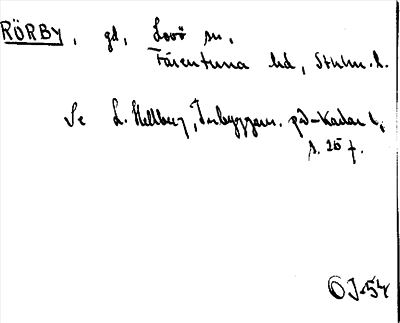 RÖRBY, gd, Lovö sn,
Färentuna hd, Sthlm. l.
Se L. Hellberg, Inbyggarn. på -Karlar I,
s. 20 f.
OJ-54